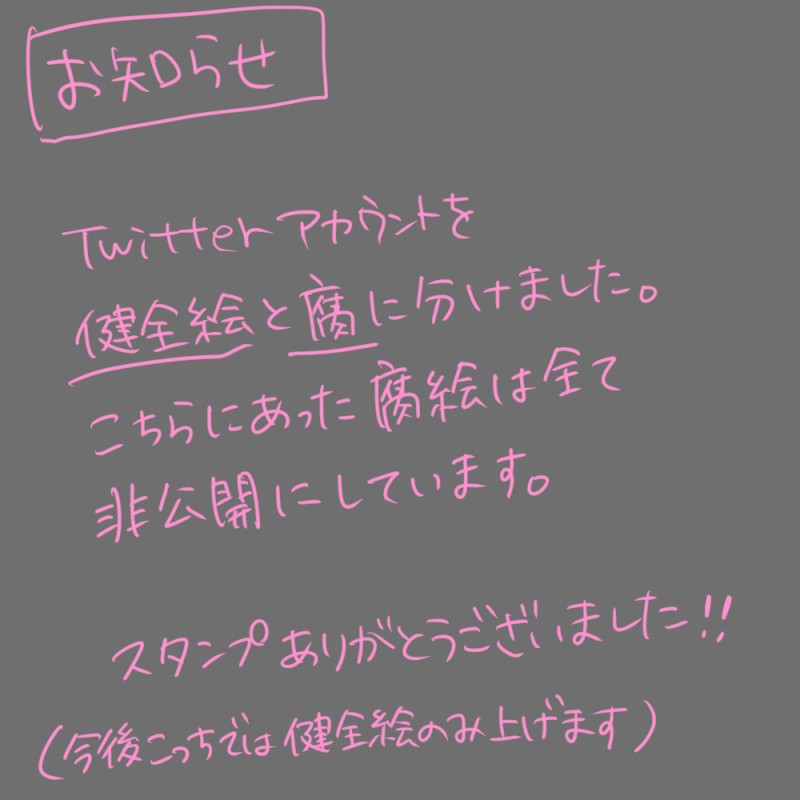 お知らせ
Twitterアカウントを
健全絵と腐に分けました。
こちらにあった腐絵は全て
非公開にしています。
スタンプありがとうございました!!
(今後こっちでは健全絵のみ上げます)